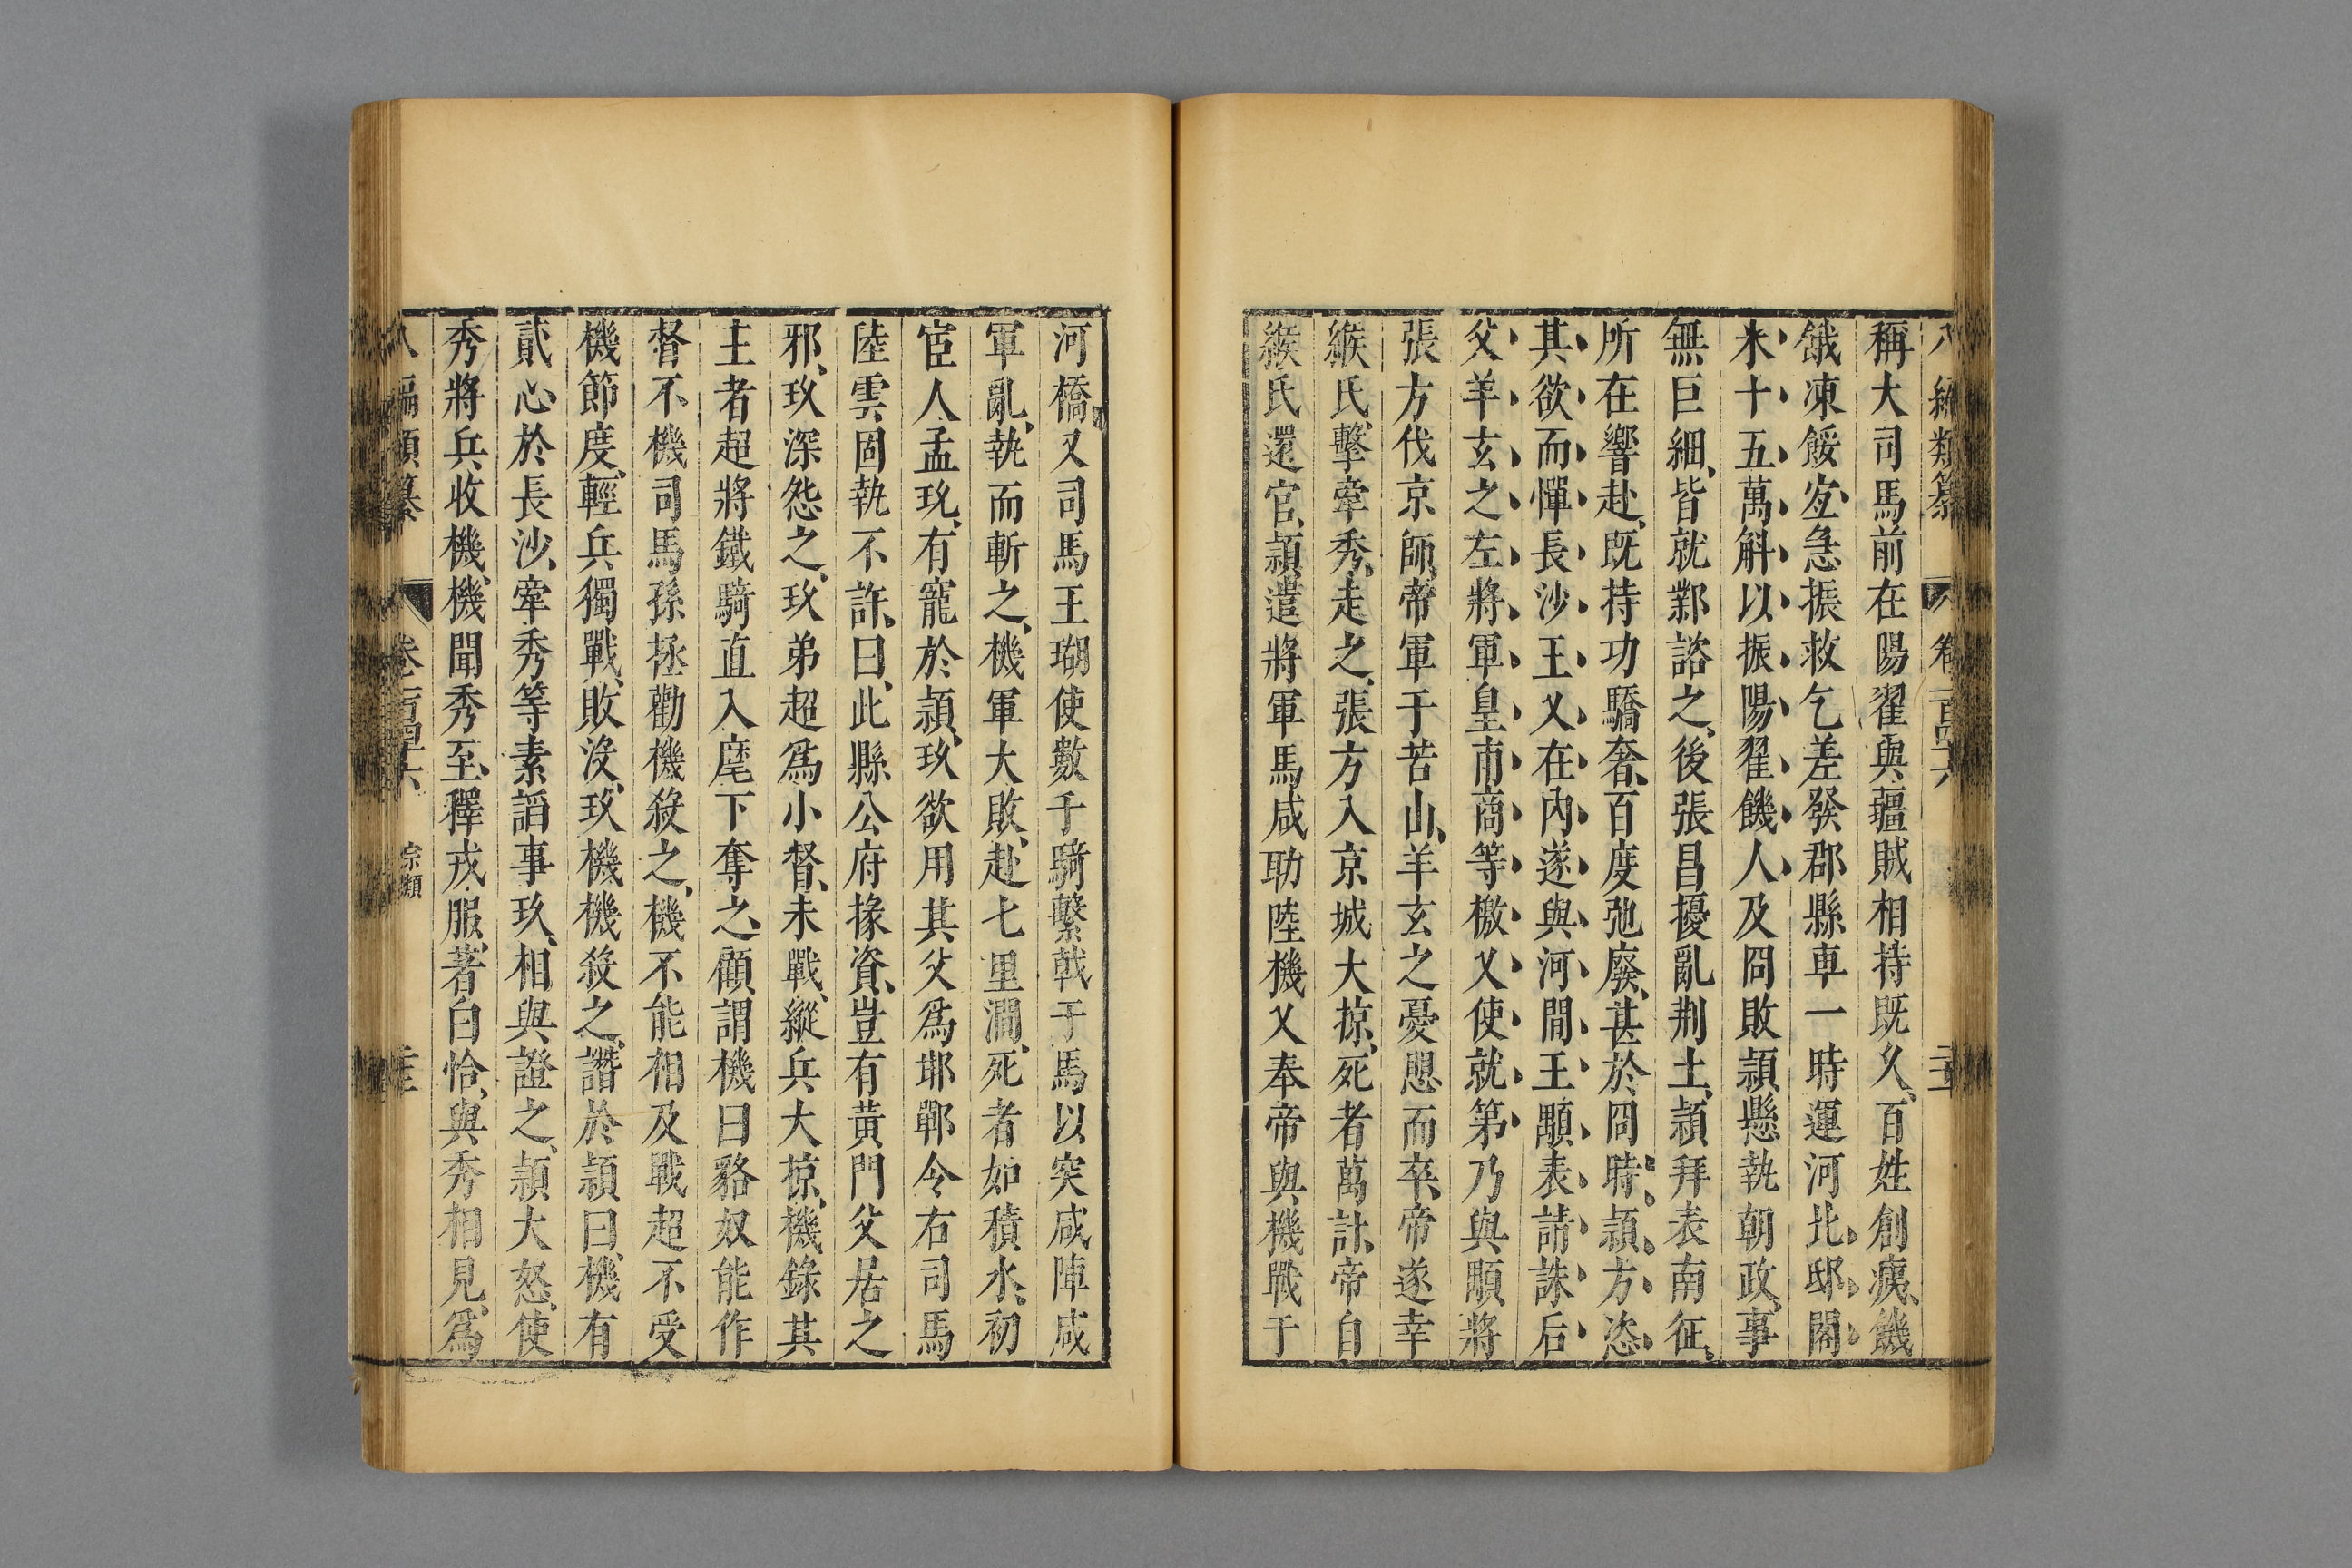 八編類纂 卷一百四六
稱大司馬前在陽翟與疆賊相持既久百姓創痍饑
餓凍餒宜急振救乞差發郡縣車一時運河北邸閣
米十五萬斛以振陽翟饑人及冏敗頴懸執朝政事
無巨細皆就鄴諮之後張昌擾亂荆土頴拜表南征
所在響赴既持功驕奢百度弛廢甚於冏時頴方恣
其欲而憚長沙王乂在內遂與河間王顒表請誅后
父羊玄之左將軍皇甫商等檄乂使就第乃與顒將
張方伐京師帝軍于苦山羊玄之憂愳而卒帝遂幸
緱氏擊牽秀走之張方入京城大掠死者萬計帝自
緱氏還官頴遣將軍馬咸助陸機乂奉帝與機戰于
河橋乂司馬王瑚使數千騎繫戟于馬以突咸陣咸
軍亂執而斬之機軍大敗赴七里澗死者如積水初
宦人孟玖有寵於頴玖欲用其父爲邯鄲令右司馬
陸雲固執不許曰此縣公府掾資豈有黃門父居之
邪玖深怨之玖弟超爲小督未戰縱兵大掠機錄其
主者超將鐵騎直入麾下奪之顧謂機曰貉奴能作
督不機司馬孫拯勸機殺之機不能相及戰超不受
機節度輕兵獨戰敗沒玖機機殺之譖於頴曰機有
貳心於長沙牽秀等素謟事玖相與證之頴大怒使
秀將兵收機機聞秀至釋戎服著白恰與秀相見爲
八編類纂 卷一百四六 宗類